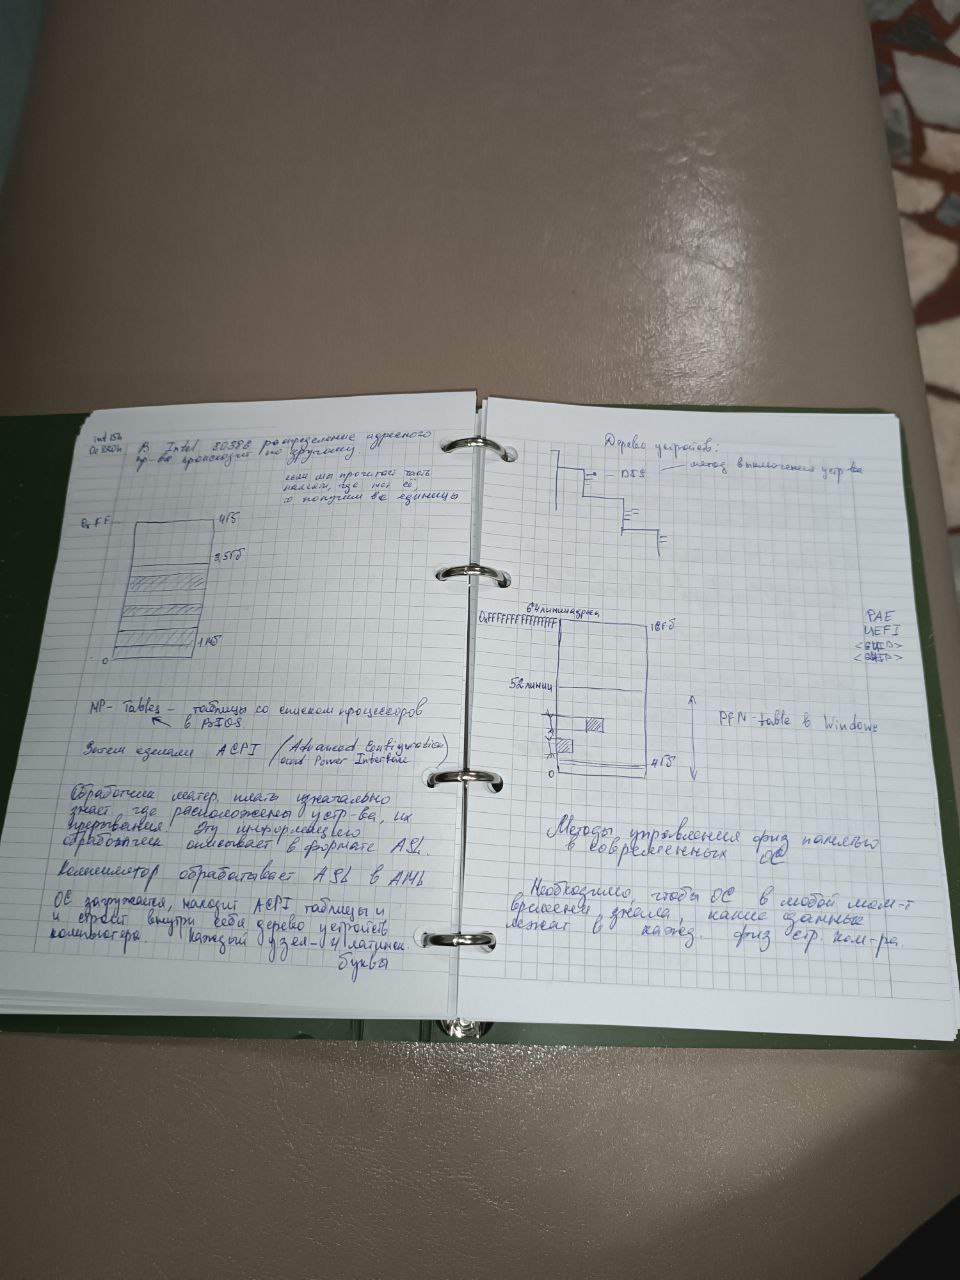 int 15h
0xE820h
В Intel 80386 распределение адресного
пр-ва происходит по другому.
если мы прочитаем часть
памяти, где нет её,
то получим все единицы
0xFF
4Гб
3,5Гб
1Мб
0
MP-Tables - таблицы со списком процессоров
в BIOS.
Затем сделали ACPI (Advanced Configuration
and Power Interface)
Обработчик матер. платы изначально
знает где расположены устр-ва, их
прерывания. Эту информацию
обработчик описывает в формате ASL.
Компилятор обрабатывает ASL в AML
ОС загружается, находит ACPI таблицы и
и строит внутри себя дерево устройств
компьютера. Каждый узел - 4 латинск.
буквы
Дерево устройств:
- DIS
метод выключения устр-ва
64 линии адреса
0xFFFFFFFFFFFFFFFF
52 линии
4Гб
0
PAE
UEFI
PFN-table в Windows
Методы управления физ памятью
в современных ОС
Необходимо, чтобы ОС в любой мом-т
времени знала, какие данные
лежат в кажд. физ стр. ком-ра